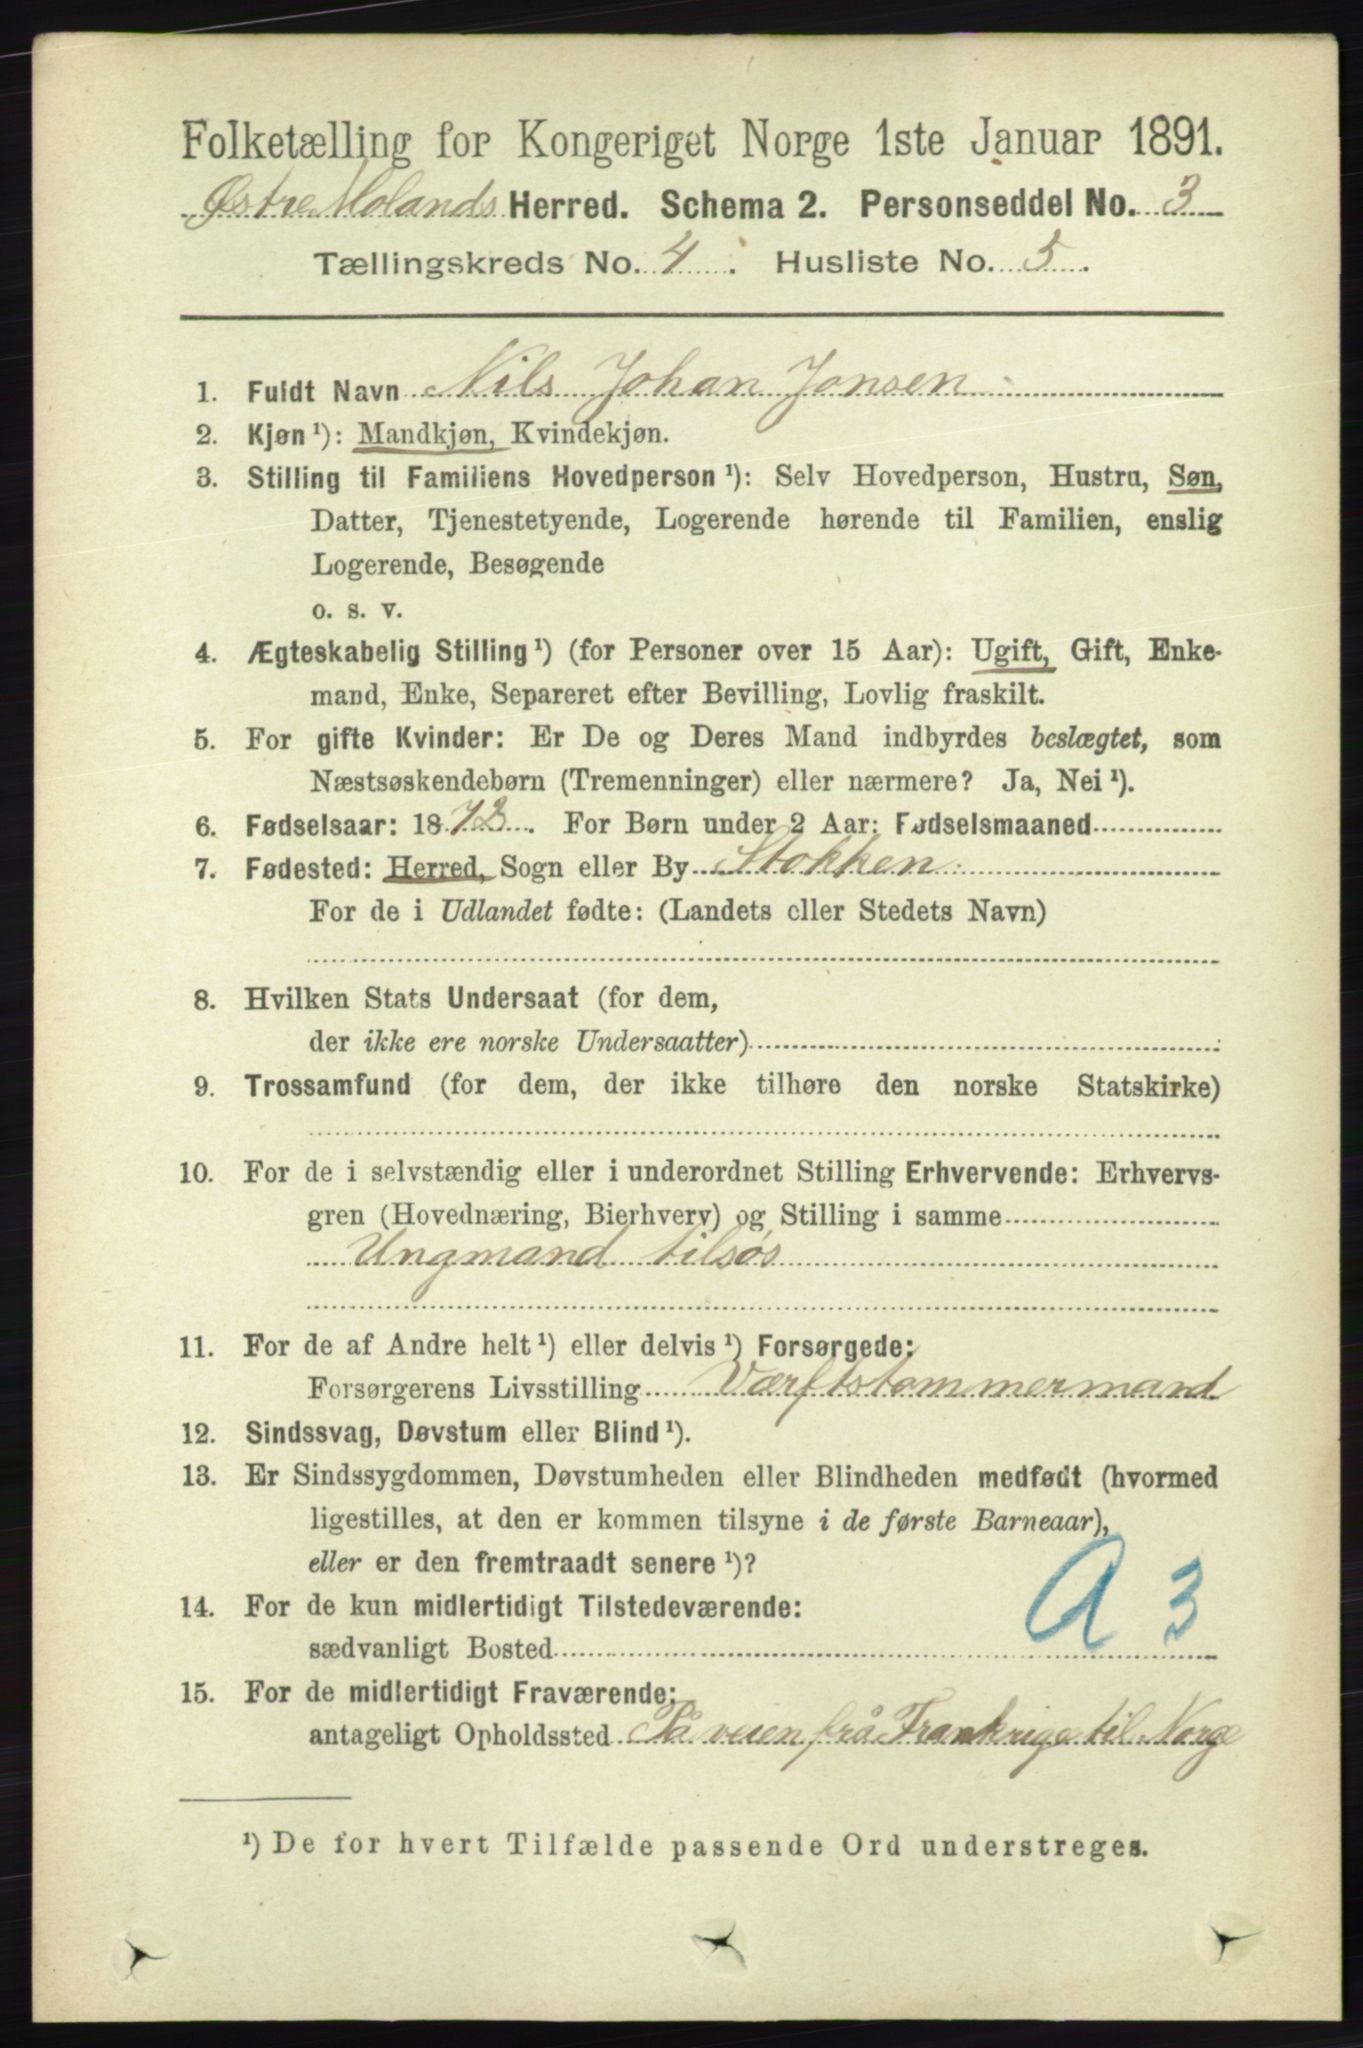 Folketælling for Kongeriget Norge 1ste Januar 1891.
Østre Molands Herred. Schema 2. Personseddel No. 3
Tællingskreds No. 4. Husliste No. 5.
1. Fuldt Navn Nils Johan Jonsen
2. Kjøn ¹): Mandkjøn, Kvindekjøn.
3. Stilling til Familiens Hovedperson ¹): Selv Hovedperson, Hustru, Søn,
Datter, Tjenestetyende, Logerende hørende til Familien, enslig
Logerende, Besøgende
o. s. v.
4. Ægteskabelig Stilling ¹) (for Personer over 15 Aar): Ugift, Gift, Enke-
mand, Enke, Separeret efter Bevilling, Lovlig fraskilt.
5. For gifte Kvinder: Er De og Deres Mand indbyrdes beslægtet, som
Næstsøskendebørn (Tremenninger) eller nærmere? Ja, Nei ¹).
6. Fødselsaar: 1872. For Børn under 2 Aar: Fødselsmaaned
7. Fødested: Herred, Sogn eller By Stokken
For de i Udlandet fødte: (Landets eller Stedets Navn)
8. Hvilken Stats Undersaat (for dem,
der ikke ere norske Undersaatter)
9. Trossamfund (for dem, der ikke tilhøre den norske Statskirke)
10. For de i selvstændig eller i underordnet Stilling Erhvervende: Erhvervs-
gren (Hovednæring, Bierhverv) og Stilling i samme
Ungmand tilsøs
11. For de af Andre helt ¹) eller delvis ¹) Forsørgede:
Forsørgerens Livsstilling Værftstømmermand
12. Sindssvag, Døvstum eller Blind ¹).
13. Er Sindssygdommen, Døvstumheden eller Blindheden medfødt (hvormed
ligestilles, at den er kommen tilsyne i de første Barneaar),
eller er den fremtraadt senere ¹)?
14. For de kun midlertidigt Tilstedeværende:
sædvanligt Bosted
A 3
15. For de midlertidigt Fraværende:
antageligt Opholdssted På veien frå Frankrige til Norge
¹) De for hvert Tilfælde passende Ord understreges.